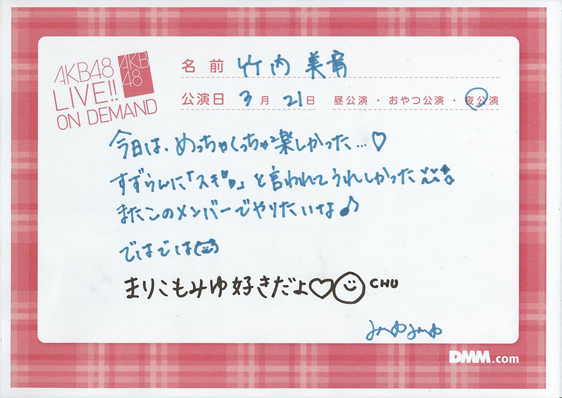 AKB48
LIVE!!
ON DEMAND
AKB
48
名前 竹内美宥
公演日 3月21日 昼公演・おやつ公演・夜公演
今日は、めっちゃくっちゃ楽しかった…♡
すずらんに「スキ♥」と言われてうれしかった
またこのメンバーでやりたいな♪
ではでは
まりこもみゆ好きだよ♡☺CHU
みゆみゆ
DMM.com